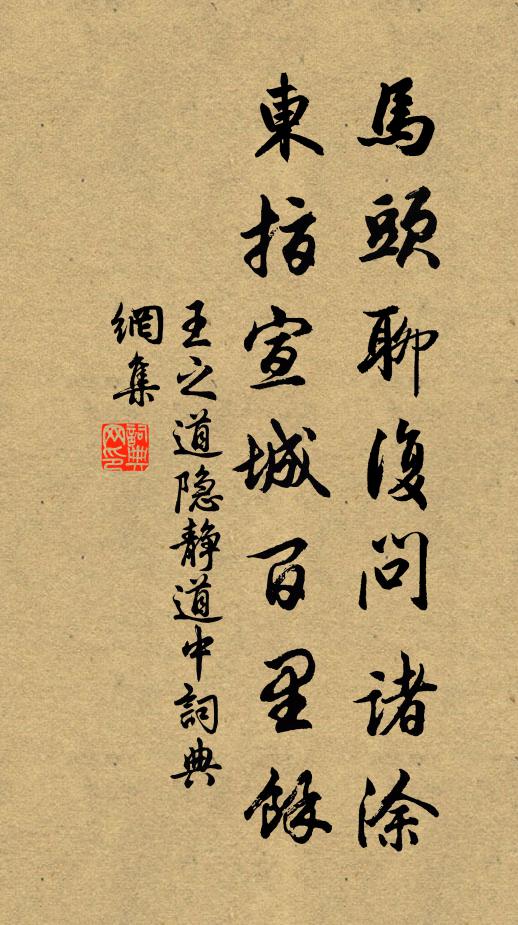 馬頭聊復問諸涂
東指宣城百里餘
王之道隐静道中詞典
網集
詞典
网印